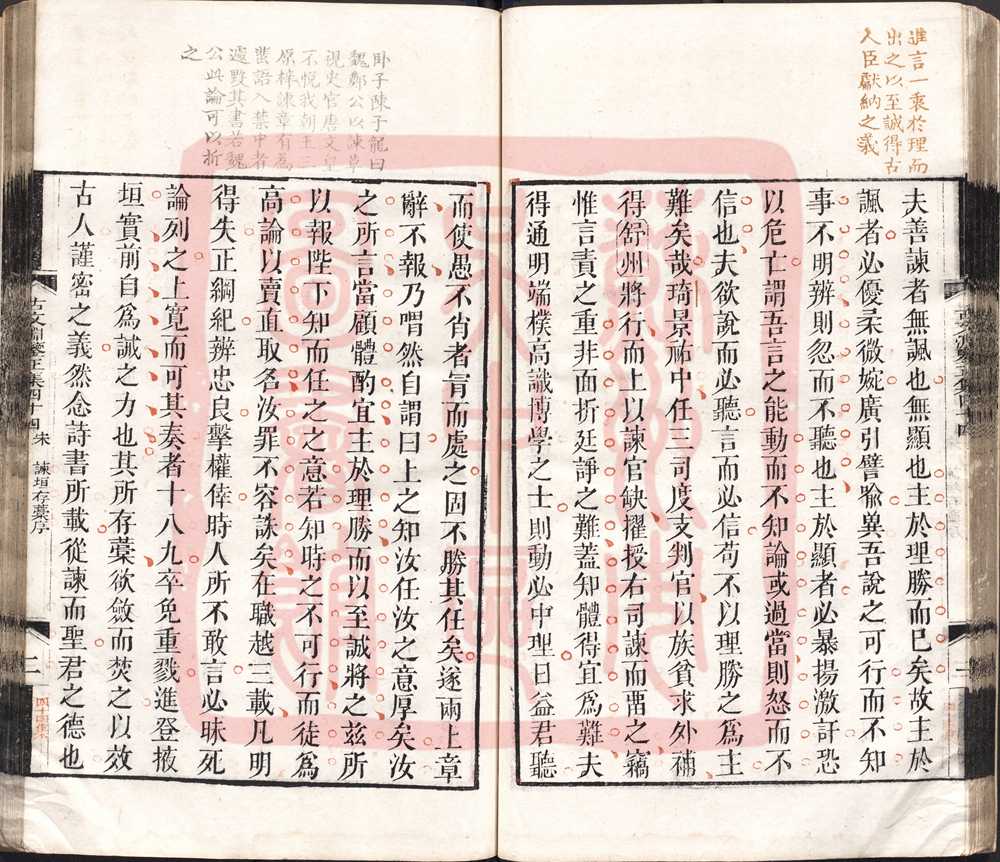 進言一衷於理而
出之以至誠得古
人臣獻納之義
夫善諫者無諷也無顯也主於理勝而已矣故主於
諷者必優柔微婉廣引譬喩冀吾說之可行而不知
事不明辨則忽而不聽也主於顯者必暴揚激訐恐
以危亡謂吾言之能動而不知論或過當則怒而不
信也夫欲說而必聽言而必信苟不以理勝之為主
難矣哉琦景祐中任三司度支判官以族貧求外補
得舒州將行而上以諫官缺擢授右司諫而畱之竊
惟言責之重非面折廷諍之難蓋知體得宜爲難夫
得通明端樸高識博學之士則動必中理日益君聽
臥子陳子龍曰
魏鄭公以諫草
視史官唐文皇
不悅我朝王三
原梓諫章有爲
蜚語入禁中者
遽毀其書若魏
公此論可以折
之
而使愚不肖者冐而處之固不勝其任矣遂兩上章
辭不報乃喟然自謂曰上之知汝任汝之意厚矣汝
之所言當顧體酌宜主於理勝而以至誠將之茲所
以報陛下知而任之之意若知時之不可行而徒爲
高論以賣直取名汝罪不容誅矣在職越三載凡明
得失正綱紀辨忠良擊權倖時人所不敢言必昧死
論列之上寛而可其奏者十八九卒免重戮進登掖
垣實前自爲誠之力也其所存藁欲斂而焚之以效
古人謹密之義然念詩書所載從諫而聖君之德也
古文淵鑒正集四十四 宋 諫垣存藁序 二